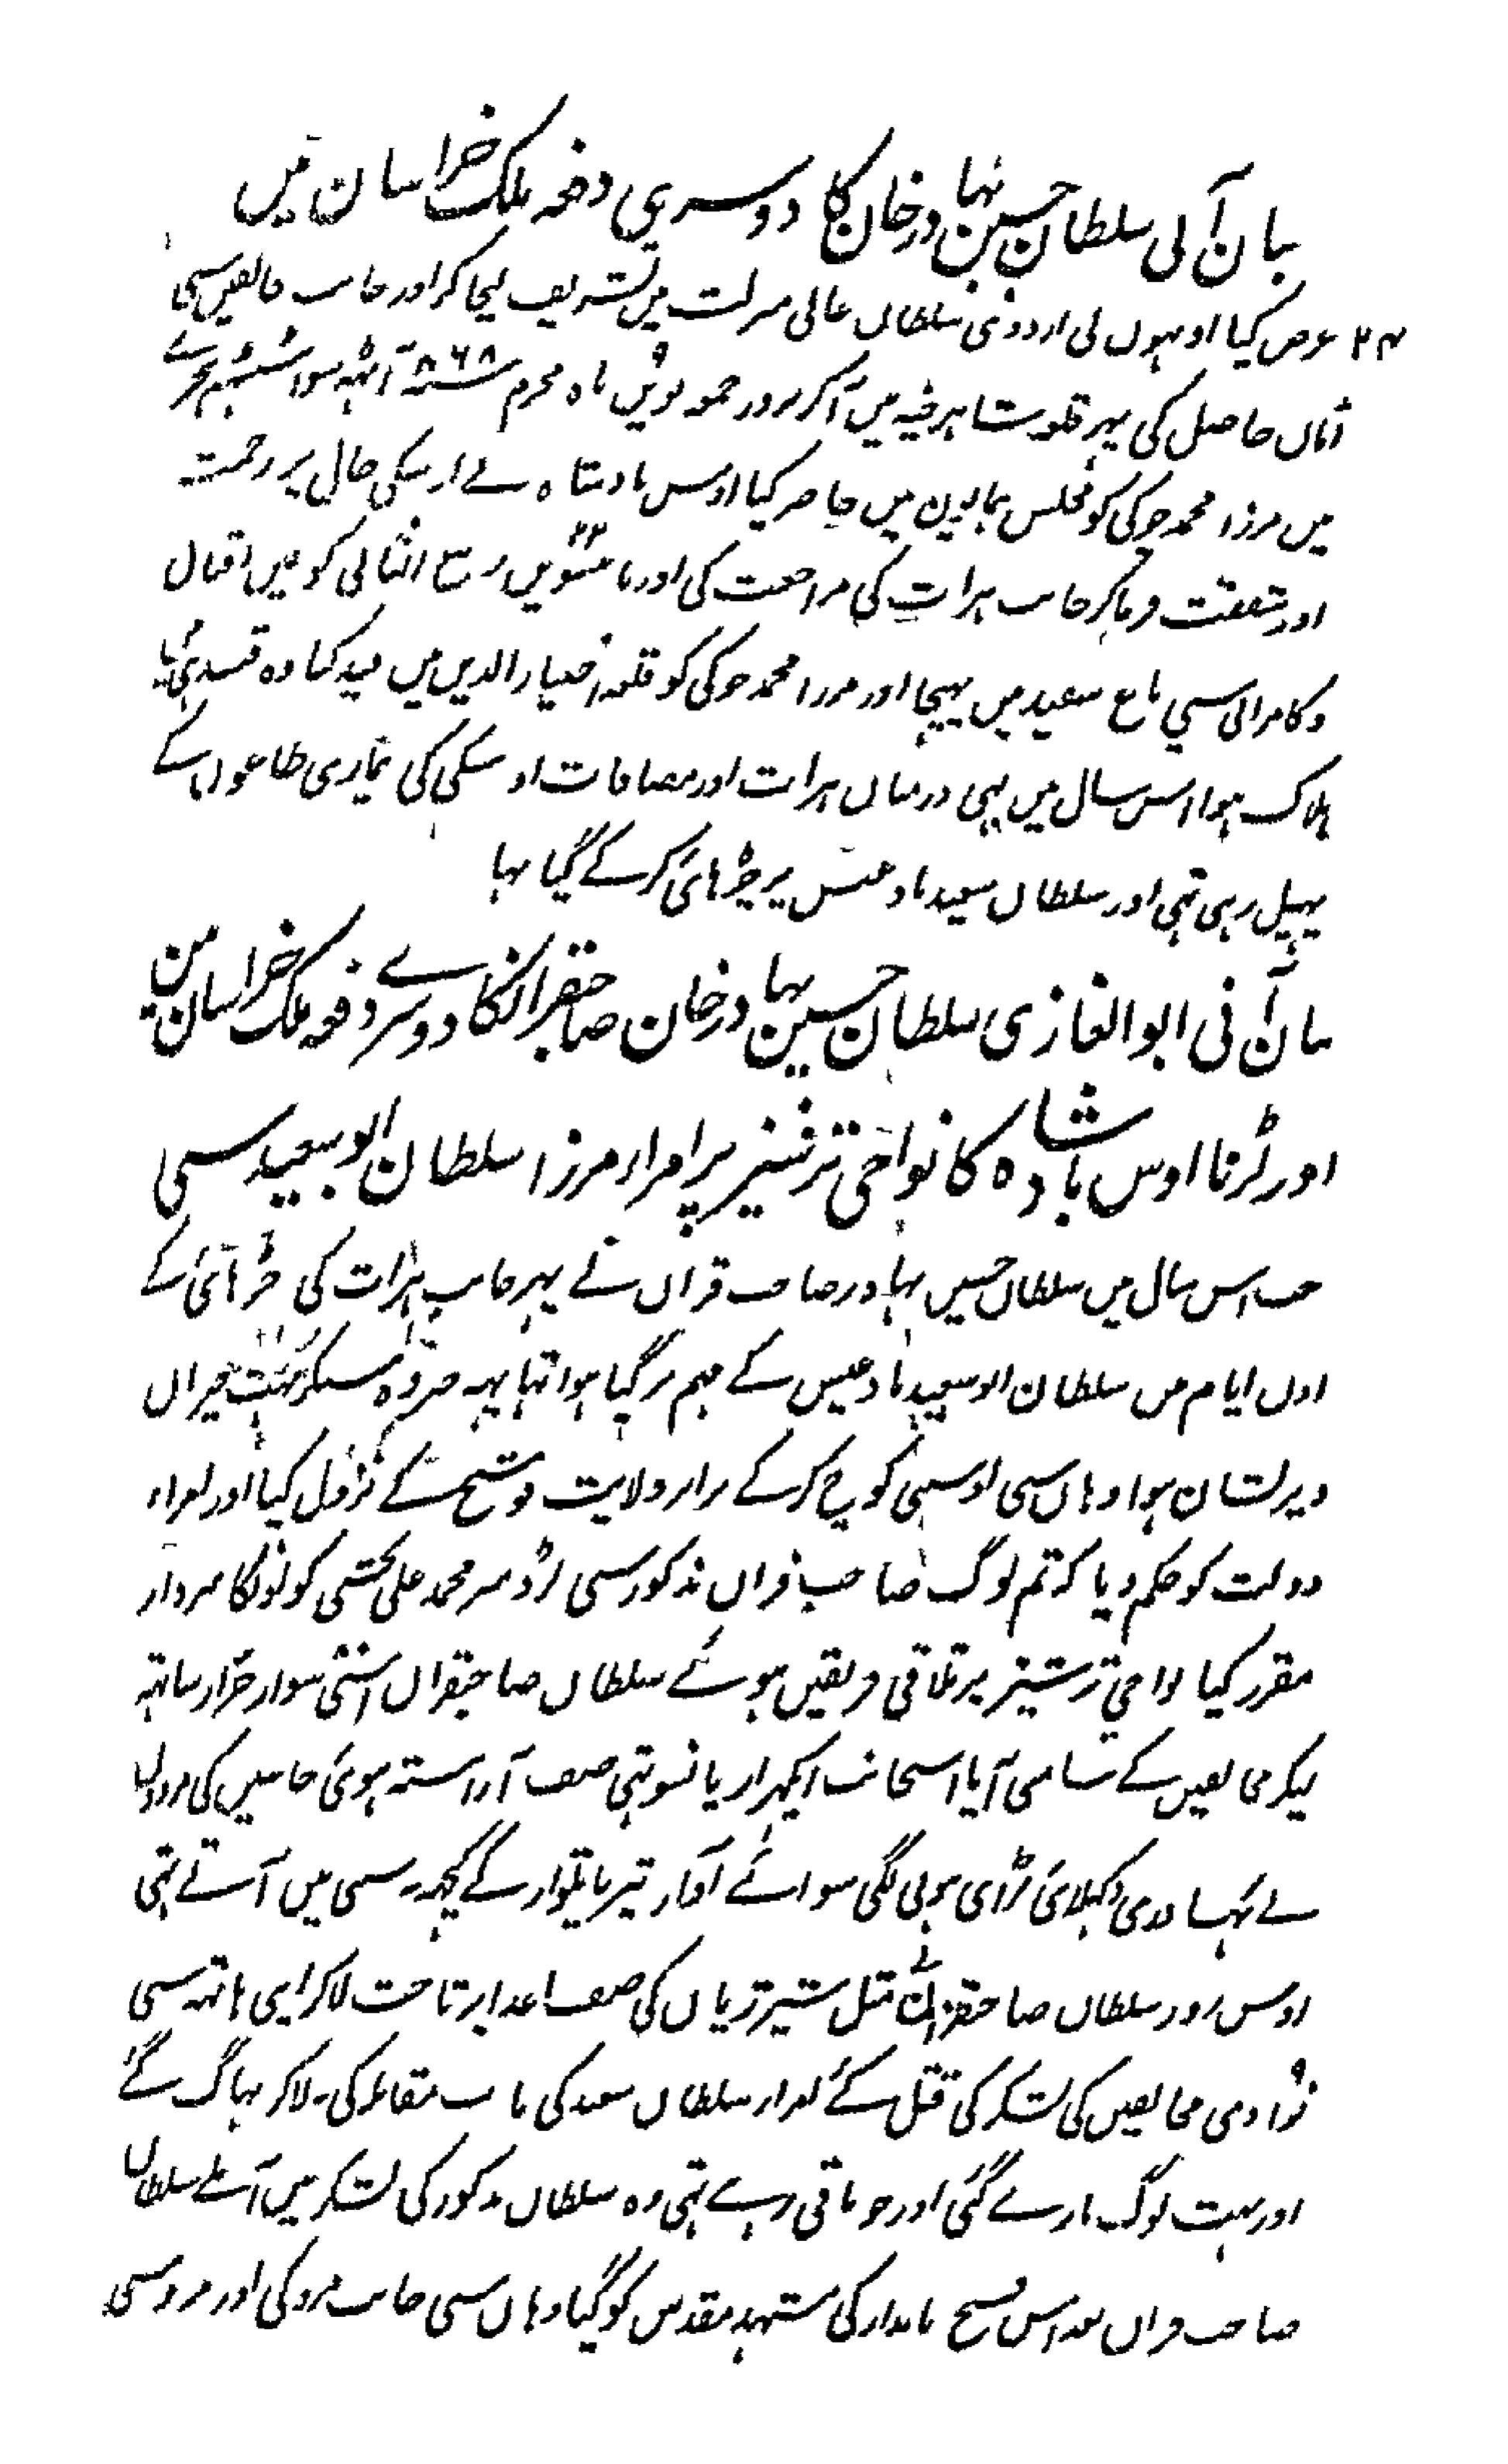 بیان آنی سلطان حسین بہادر خان کا دوسری دفعہ ملک خراسان میں
۲۴ عرض کیا اونہوں نی اردوئی سلطان عالی منزلت میں تشریف لیجا کر اور جانب مخالفین سی
اماں حاصل کی پہر قلعہ شاہرخیہ میں آکر بروز جمعہ نویں ۹ ماہ محرم سنہ ۸۶۸ آٹہہ سو اڑسٹہہ ہجرے
میں مرزا محمد جوکی کو مجلس ہمایون میں حاضر کیا اوس بادشاہ نے اوسکی حال پر رحمت
اور شفقت فرماکر جانب ہرات کی مراجعت کی اور بائیسویں ۲۲ ربیع الثانی کو میں اقبال
وکامرانی سی باغ سعید میں پہنچا اور مرزا محمد جوکی کو قلعہ اختیار الدین میں قید کیا وہ قید ہی میں
ہلاک ہوا اس سال میں بہی درمیاں ہرات اور مضافات اوسکی کی بیماری طاعون کے
پہیل رہی تہی اور سلطان سعید بادغیس پر چڑہائی کرکے گیا تہا
بیان آنی ابو الغازی سلطان حسین بہادر خان صاحبقرانکا دوسرے دفعہ ملک خراسان مین
اور لڑنا اوس بادشاہ کا نواحی ترشیز پر امراء مرزا سلطان ابو سعید سی
جب اس سال میں سلطان حسین بہادر صاحب قران نے پہر جانب ہرات کی چڑہائی کے
اون ایام میں سلطان ابو سعید بادغیس کے مہم پر گیا ہوا تہا یہہ خبر وہ سنکر بہت حیران
وپریشان ہوا وہاں سی اوسی کوچ کرکے برابر ولایت فوشنج کے نزول کیا اور امراء
دولت کو حکم دیا کہ تم لوگ صاحب قراں مذکور سی لڑو میر محمد علی بخشی کو اونکا سردار
مقرر کیا نواحی ترشیز پر تلاقی فریقین ہوئے سلطان صاحبقران اسی سوار جرار ساتہہ
لیکر مخالفین کے سامی آیا اسجانب ایکہزار پانسو تہی صف آراستہ ہوئی جانبین کی مردوں
نے بہادری دکہلائی لڑائی ہونی لگی سوائے آواز تیر یا تلوار کے کچہہ سنی میں آتے تہی
اوس روز سلطان صاحبقران نے مثل شیر ژیاں کی صف اعدا پر تاخت لاکر اپنی ہاتہہ سی
نو ۹ آدمی مخالفین کی لشکر کی قتل کئے امراء سلطان سعید کی تاب مقابلہ کی نہ لاکر بہاگ گئے
اور بہت لوگ مارے گئی اور جو باقی رہے تہی وہ سلطان مذکور کی لشکر میں آملے سلطان
صاحب قراں بعد اس فتح نامدار کی مشہد مقدس کو گیا وہاں سی جانب مرو کی اور مرو سی